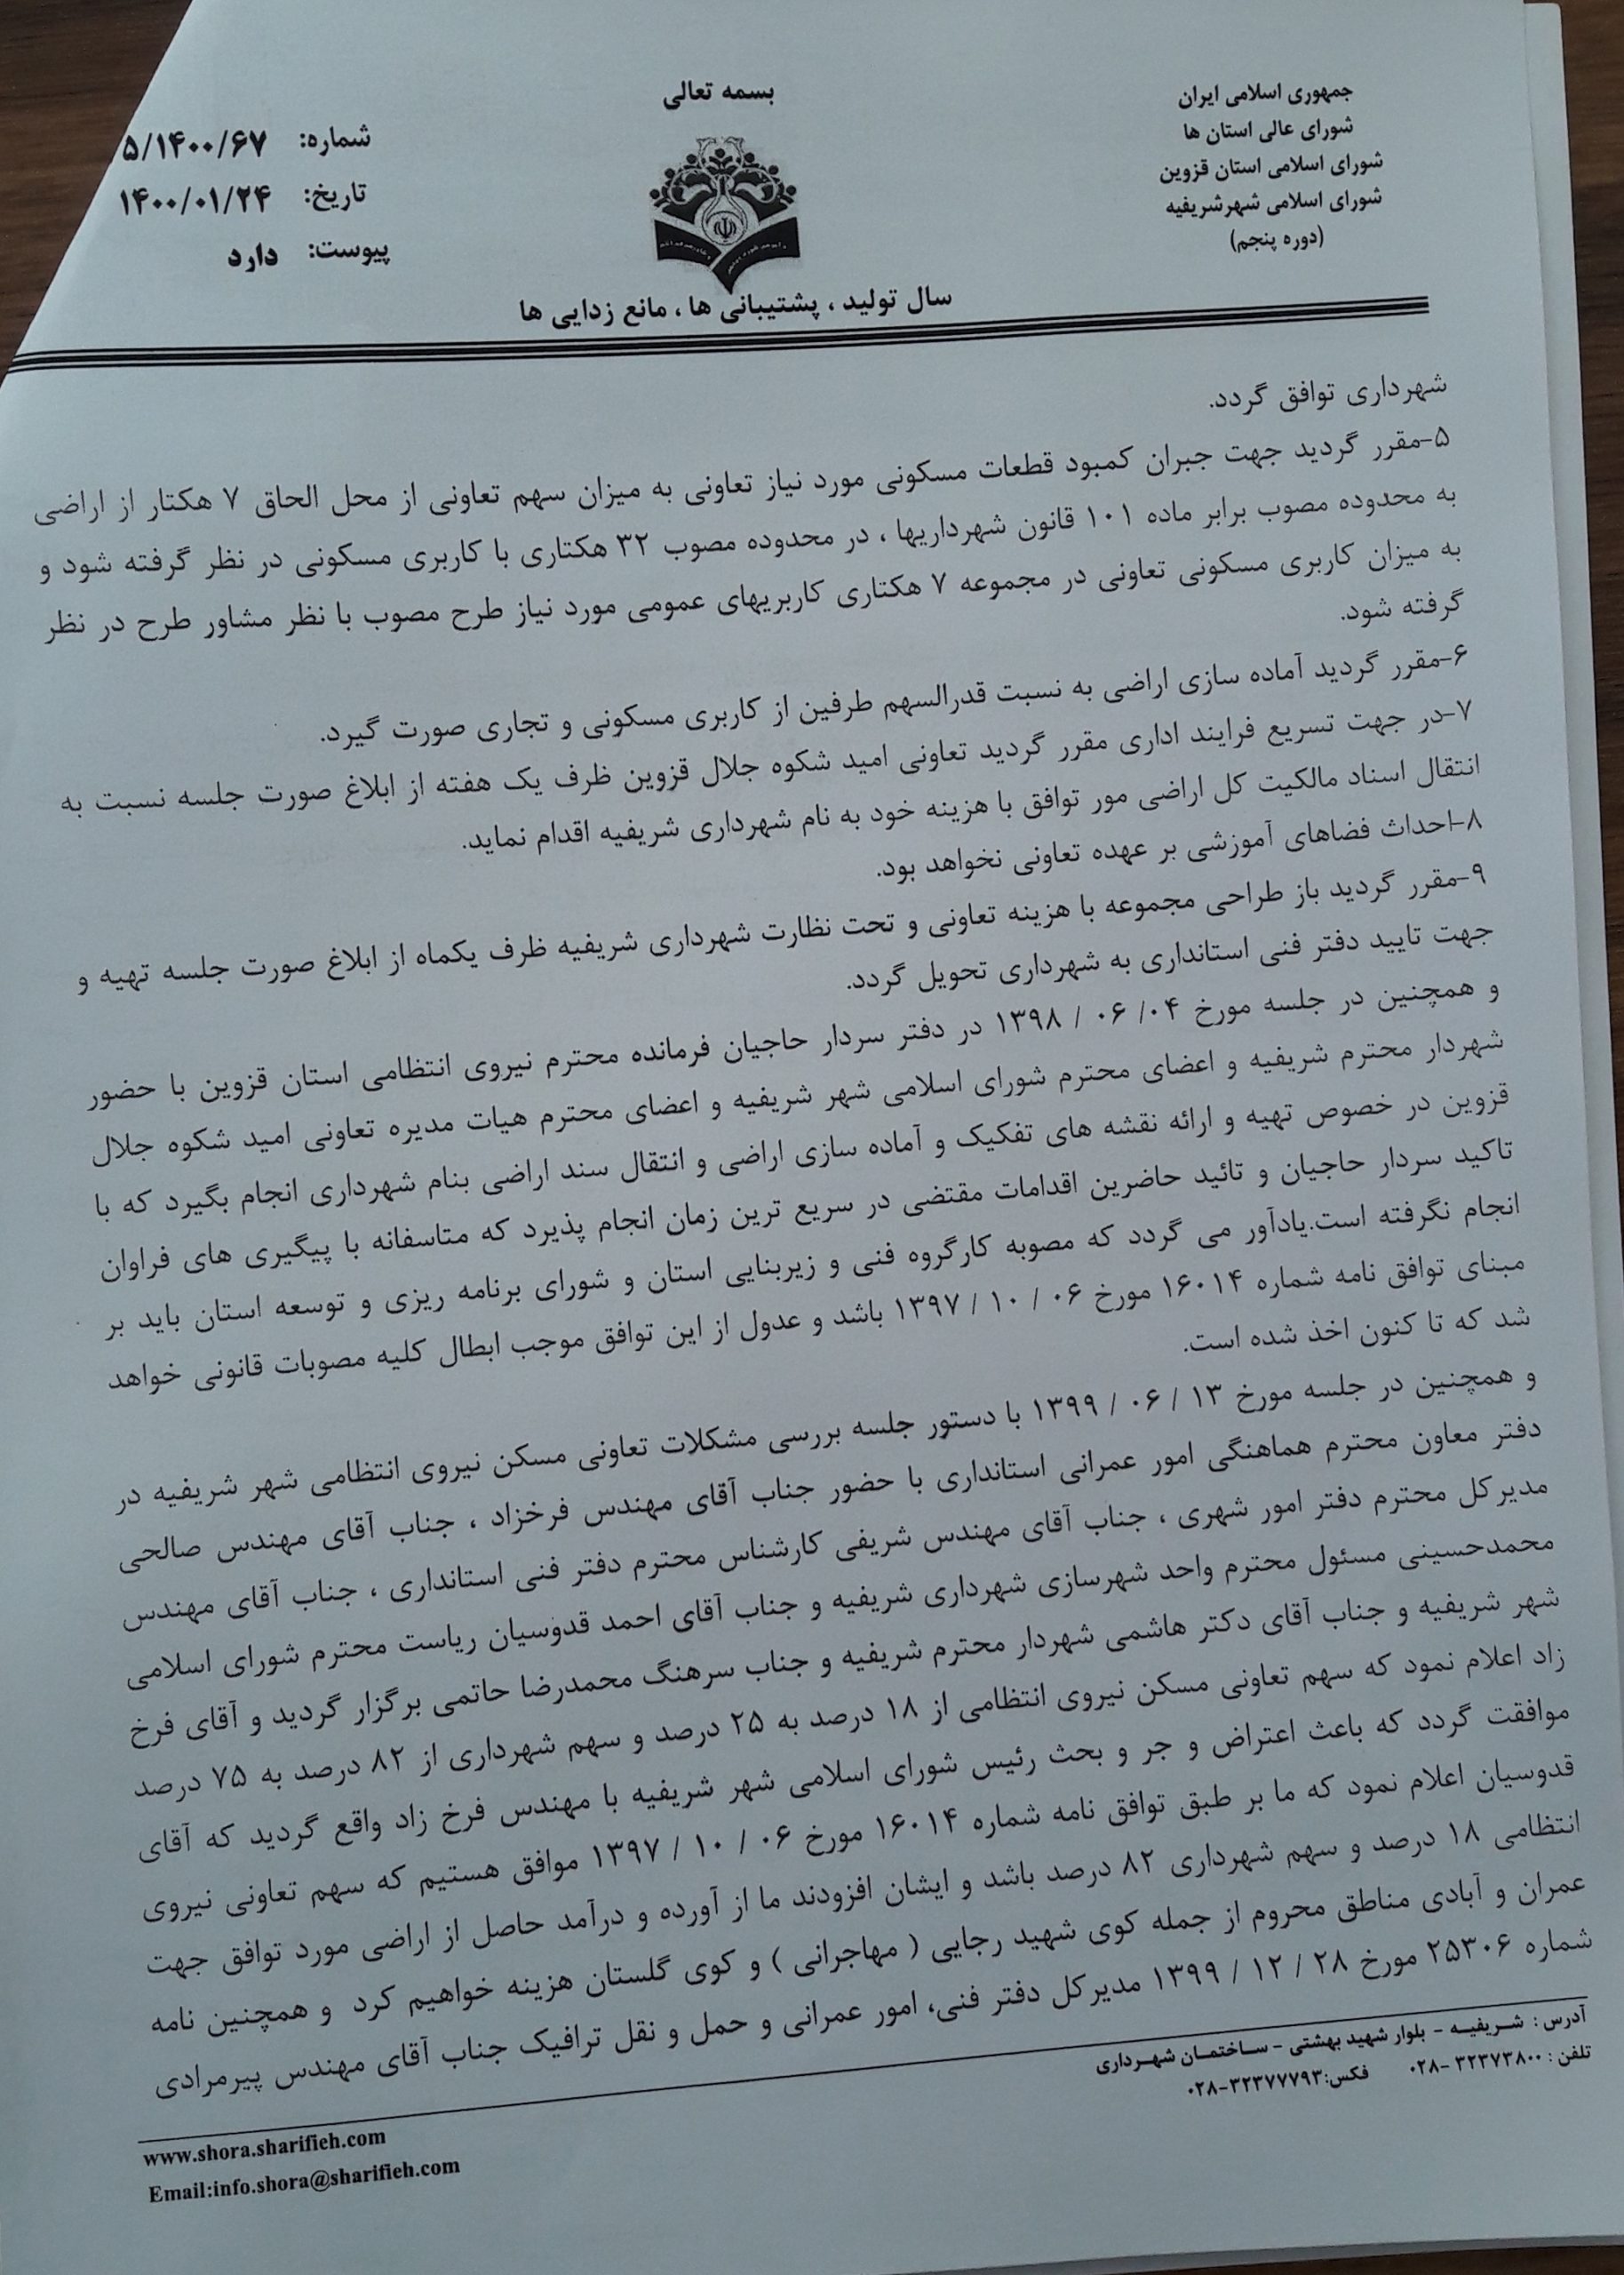 بسمه تعالی
جمهوری اسلامی ایران
شورای عالی استان ها
شورای اسلامی استان قزوین
شورای اسلامی شهرشریفیه
(دوره پنجم)
شماره: ۵/۱۴۰۰/۶۷
تاریخ: ۱۴۰۰/۰۱/۲۴
پیوست: دارد
سال تولید ، پشتیبانی ها ، مانع زدایی ها
شهرداری توافق گردد.
۵-مقرر گردید جهت جبران کمبود قطعات مسکونی مورد نیاز تعاونی به میزان سهم تعاونی از محل الحاق ۷ هکتار از اراضی
به محدوده مصوب برابر ماده ۱۰۱ قانون شهرداریها ، در محدوده مصوب ۳۲ هکتاری با کاربری مسکونی در نظر گرفته شود و
به میزان کاربری مسکونی تعاونی در مجموعه ۷ هکتاری کاربریهای عمومی مورد نیاز طرح مصوب با نظر مشاور طرح در نظر
گرفته شود.
۶-مقرر گردید آماده سازی اراضی به نسبت قدرالسهم طرفین از کاربری مسکونی و تجاری صورت گیرد.
۷-در جهت تسریع فرایند اداری مقرر گردید تعاونی امید شکوه جلال قزوین ظرف یک هفته از ابلاغ صورت جلسه نسبت به
انتقال اسناد مالکیت کل اراضی مور توافق با هزینه خود به نام شهرداری شریفیه اقدام نماید.
۸-احداث فضاهای آموزشی بر عهده تعاونی نخواهد بود.
۹-مقرر گردید باز طراحی مجموعه با هزینه تعاونی و تحت نظارت شهرداری شریفیه ظرف یکماه از ابلاغ صورت جلسه تهیه و
جهت تایید دفتر فنی استانداری به شهرداری تحویل گردد.
و همچنین در جلسه مورخ ۰۴/ ۰۶ / ۱۳۹۸ در دفتر سردار حاجیان فرمانده محترم نیروی انتظامی استان قزوین با حضور
شهردار محترم شریفیه و اعضای محترم شورای اسلامی شهر شریفیه و اعضای محترم هیات مدیره تعاونی امید شکوه جلال
قزوین در خصوص تهیه و ارائه نقشه های تفکیک و آماده سازی اراضی و انتقال سند اراضی بنام شهرداری انجام بگیرد که با
تاکید سردار حاجیان و تائید حاضرین اقدامات مقتضی در سریع ترین زمان انجام پذیرد که متاسفانه با پیگیری های فراوان
انجام نگرفته است.یادآور می گردد که مصوبه کارگروه فنی و زیربنایی استان و شورای برنامه ریزی و توسعه استان باید بر
مبنای توافق نامه شماره ۱۶۰۱۴ مورخ ۰۶ / ۱۰ / ۱۳۹۷ باشد و عدول از این توافق موجب ابطال کلیه مصوبات قانونی خواهد
شد که تا کنون اخذ شده است.
و همچنین در جلسه مورخ ۱۳ / ۰۶ / ۱۳۹۹ با دستور جلسه بررسی مشکلات تعاونی مسکن نیروی انتظامی شهر شریفیه در
دفتر معاون محترم هماهنگی امور عمرانی استانداری با حضور جناب آقای مهندس فرخزاد ، جناب آقای مهندس صالحی
مدیرکل محترم دفتر امور شهری ، جناب آقای مهندس شریفی کارشناس محترم دفتر فنی استانداری ، جناب آقای مهندس
محمدحسینی مسئول محترم واحد شهرسازی شهرداری شریفیه و جناب آقای احمد قدوسیان ریاست محترم شورای اسلامی
شهر شریفیه و جناب آقای دکتر هاشمی شهردار محترم شریفیه و جناب سرهنگ محمدرضا حاتمی برگزار گردید و آقای فرخ
زاد اعلام نمود که سهم تعاونی مسکن نیروی انتظامی از ۱۸ درصد به ۲۵ درصد و سهم شهرداری از ۸۲ درصد به ۷۵ درصد
موافقت گردد که باعث اعتراض و جر و بحث رئیس شورای اسلامی شهر شریفیه با مهندس فرخ زاد واقع گردید که آقای
قدوسیان اعلام نمود که ما بر طبق توافق نامه شماره ۱۶۰۱۴ مورخ ۰۶ / ۱۰ / ۱۳۹۷ موافق هستیم که سهم تعاونی نیروی
انتظامی ۱۸ درصد و سهم شهرداری ۸۲ درصد باشد و ایشان افزودند ما از آورده و درآمد حاصل از اراضی مورد توافق جهت
عمران و آبادی مناطق محروم از جمله کوی شهید رجایی ( مهاجرانی ) و کوی گلستان هزینه خواهیم کرد و همچنین نامه
شماره ۲۵۳۰۶ مورخ ۲۸ / ۱۲ / ۱۳۹۹ مدیرکل دفتر فنی، امور عمرانی و حمل و نقل ترافیک جناب آقای مهندس پیرمرادی
آدرس : شـریفیـه - بلوار شهید بهشتی - ساختمـان شهـرداری
تلفن : ۳۲۳۷۳۸۰۰ -۰۲۸ فکس:۳۲۳۷۷۷۹۳-۰۲۸
www.shora.sharifieh.com
Email:info.shora@sharifieh.com